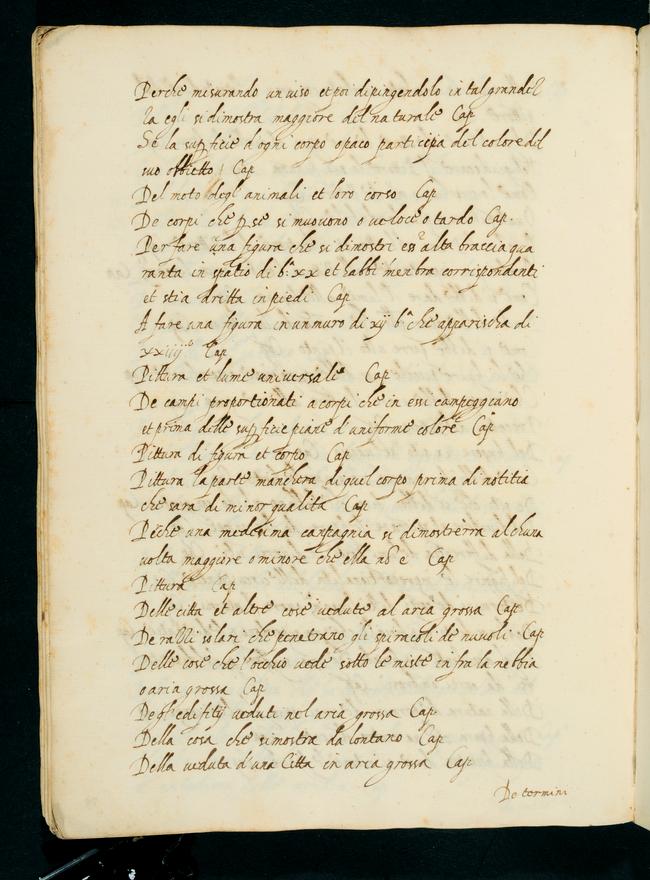 Perche misurando un uiso et poi dipingendolo in tal grandez
za egli si dimostra maggiore del naturale Cap
Se la supficie d'ogni corpo opaco participa del colore del
suo obbietto Cap
Del moto degl' animali et loro corso Cap
De corpi che p se si muouono o ueloce o tardo Cap.
Per fare una figura che si dimostri essẽ alta braccia qua
ranta in spatio di bª xx et habbi menbra corrispondenti
et stia dritta in piedi Cap
A fare una figura in un muro di xij bª che apparischa di
xxiiij Cap
Pittura et lume uniuersale Cap
De campi proportionati a corpi che in essi campeggiano
et prima delle supficie piane d'uniforme colore Cap
Pittura di figura et corpo Cap
Pittura la parte manchera di quel corpo prima di notitia
che sara di minor qualita Cap
Pche una medesima canpagnia si dimosterra alchuna
uolta maggiore o minore che ella nõ e Cap
Pittura Cap
Delle citta et altre cose uedute al aria grossa Cap
De razzi solari che penetrano gli spiracoli de nuuoli Cap
Delle cose che l'occhio uede sotto se miste in fra la nebbia
o aria grossa Cap
De gl' edifitij ueduti nel aria grossa Cap
Della cosa che si mostra da lontano Cap
Della ueduta d'una Citta in aria grossa Cap
De termini